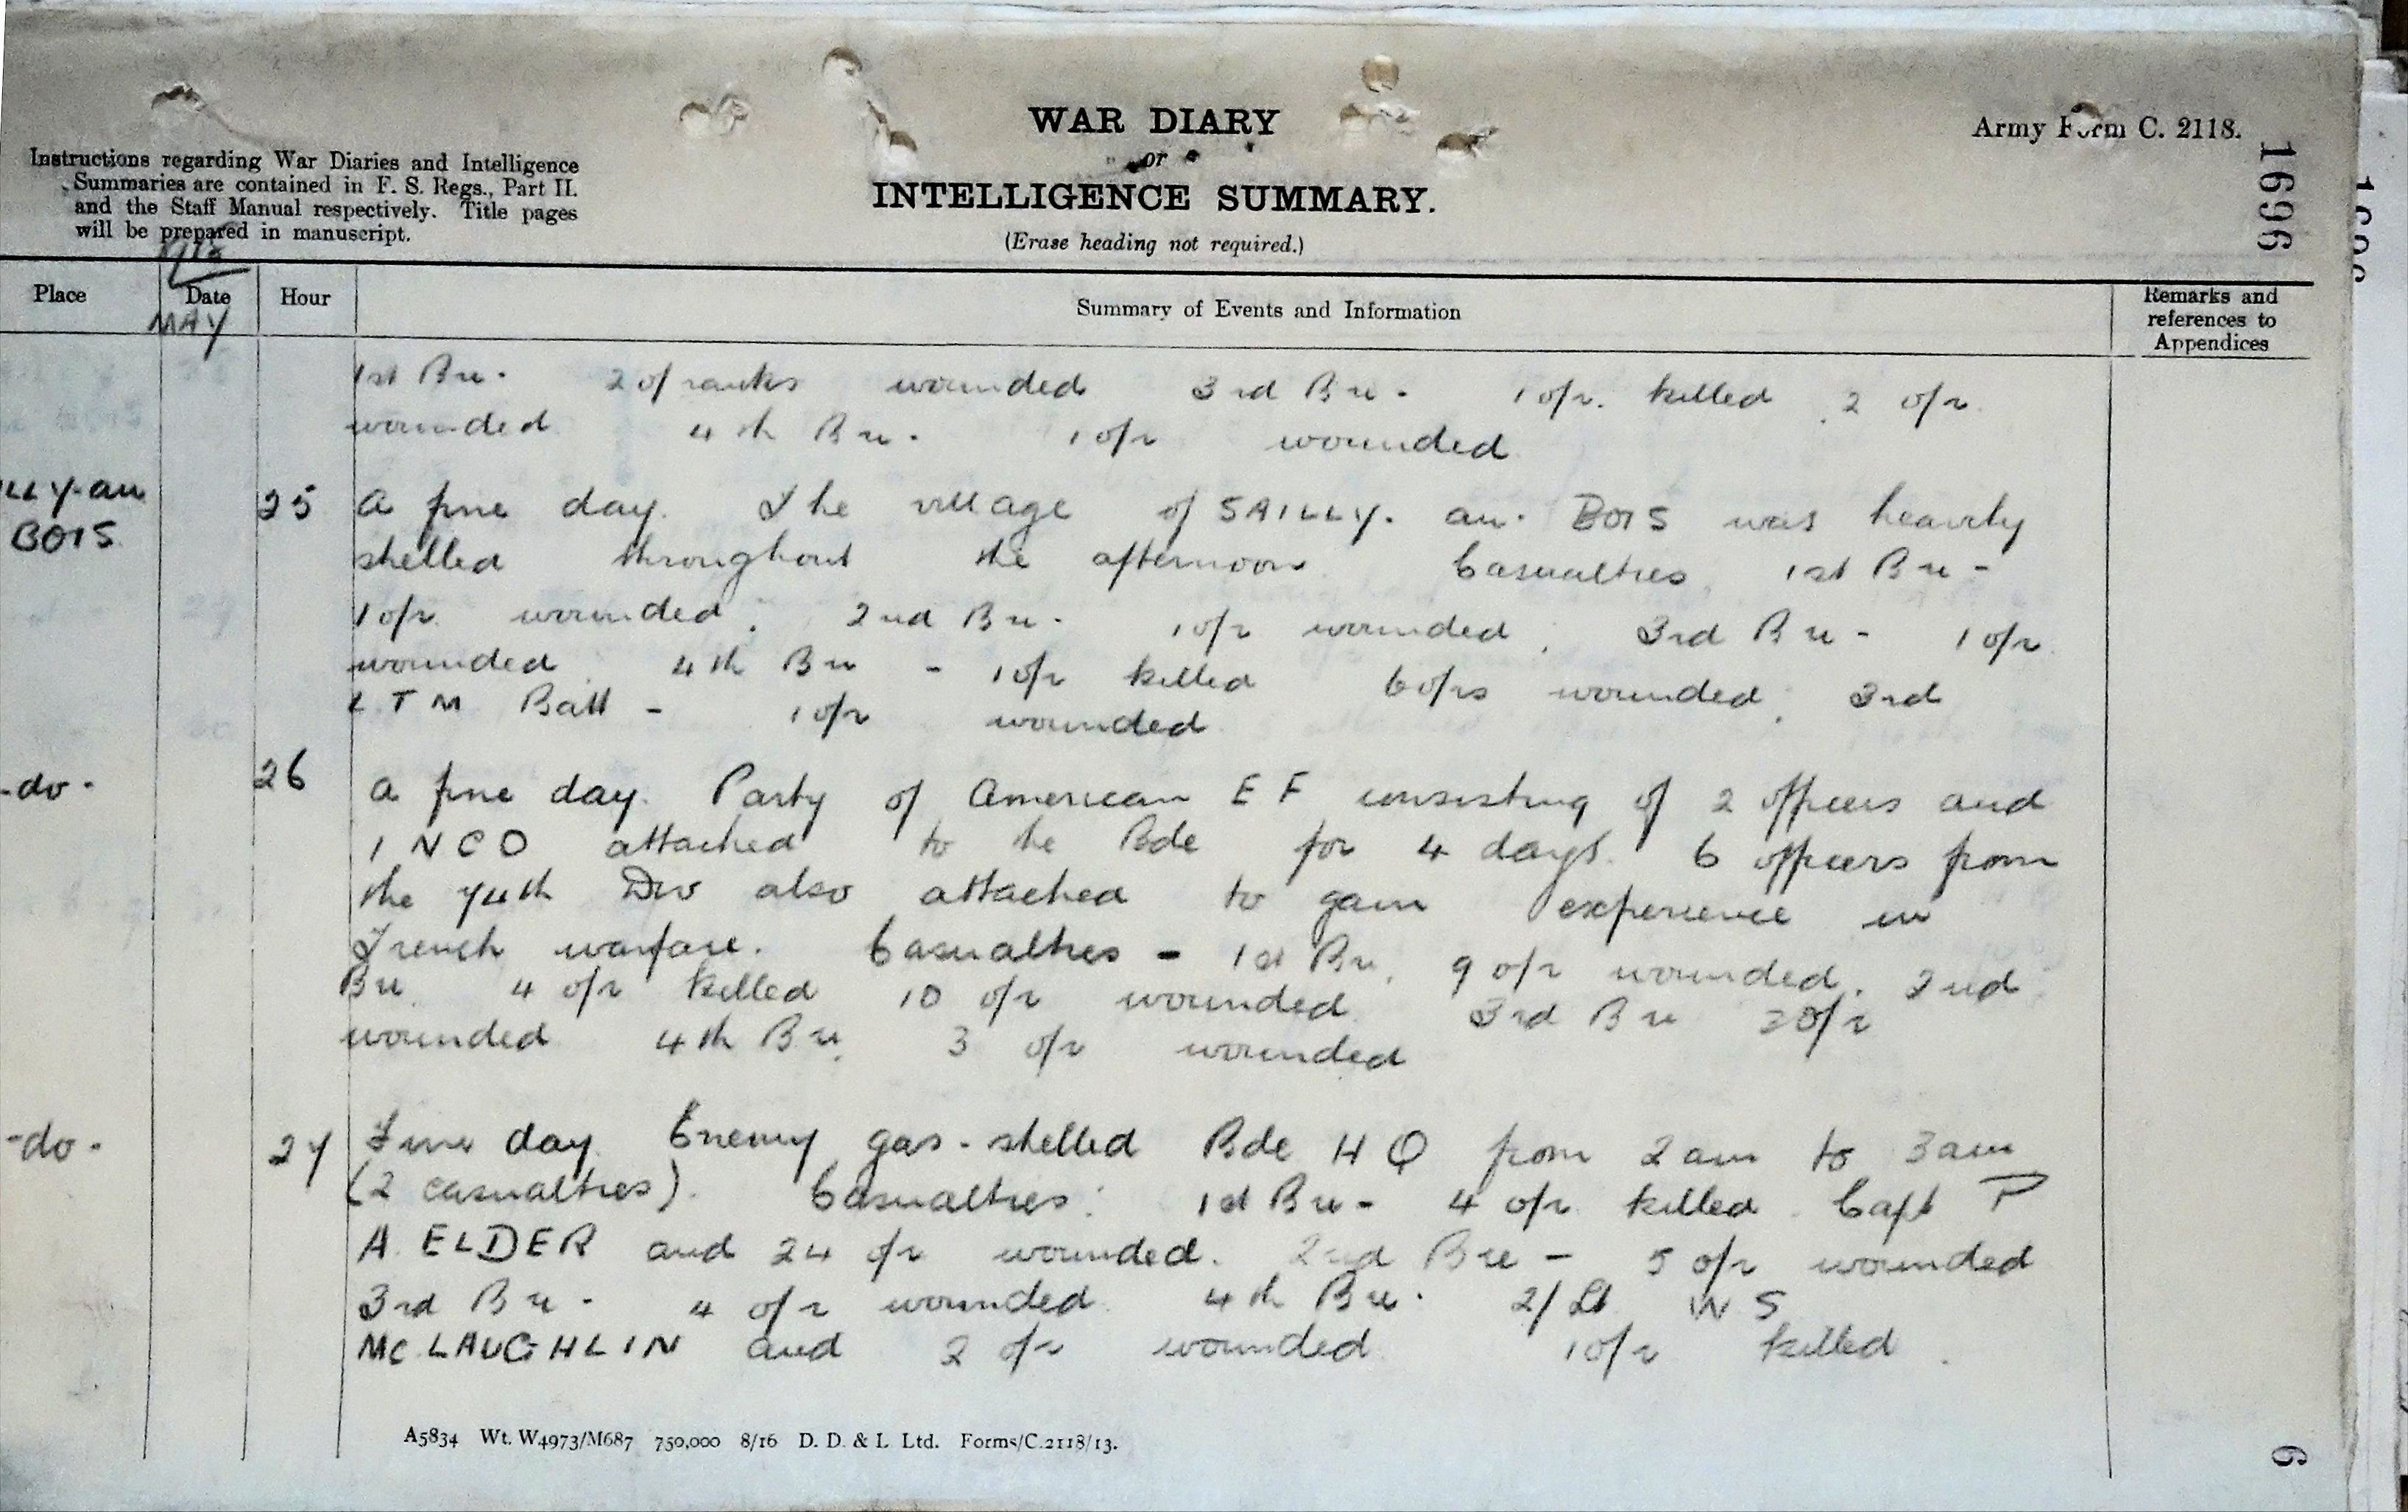 WAR DIARY
or
INTELLIGENCE SUMMARY.
(Erase heading not required.)
Army Form C. 2118.
1696
Instructions regarding War Diaries and Intelligence
Summaries are contained in F. S. Regs., Part II.
and the Staff Manual respectively. Title pages
will be prepared in manuscript.
Place
Date
MAY
Hour
Summary of Events and Information
Remarks and
references to
Appendices
1st Bn. 2 o/ranks wounded 3rd Bn. 1 o/r. killed 2 o/r
wounded 4th Bn. 1 o/r wounded
LLY-au
BOIS
25 A fine day. The village of SAILLY. au. BOIS was heavily
shelled throughout the afternoon Casualties, 1st Bn -
1 o/r wounded; 2nd Bn. 1 o/r wounded; 3rd Bn - 1 o/r
wounded 4th Bn - 1 o/r killed 6 o/rs wounded; 3rd
LTM Batt - 1 o/r wounded
-do-
26 A fine day. Party of American EF consisting of 2 officers and
1 NCO attached to the Bde for 4 days. 6 officers from
the 74th Div also attached to gain experience in
French warfare. Casualties - 1st Bn, 9 o/r wounded. 2nd
Bn 4 o/r killed 10 o/r wounded 3rd Bn 2 o/r
wounded 4th Bn, 3 o/r wounded
-do-
27 Fine day Enemy gas-shelled Bde HQ from 2am to 3am
(2 casualties). Casualties: 1st Bn - 4 o/r killed Capt P
A. ELDER and 24 o/r wounded. 2nd Bn - 5 o/r wounded
3rd Bn - 4 o/r wounded 4th Bn. 2/Lt W S
McLAUGHLIN and 2 o/r wounded 1 o/r killed.
A5834 Wt. W4973/M687 750,000 8/16 D. D. & L Ltd. Forms/C.2118/13.
6